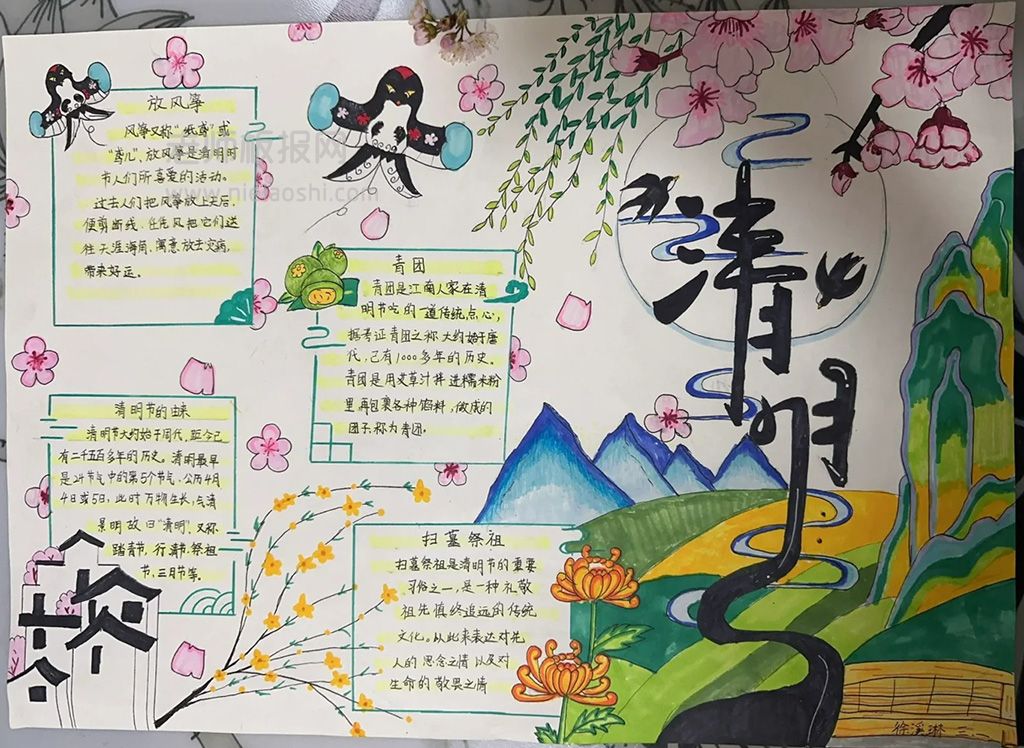 放风筝
风筝又称“纸鸢”或
“鸢儿”，放风筝是清明时
节人们所喜爱的活动。
过去人们把风筝放上天后，
便剪断线，任凭风把它们送
往天涯海角，寓意放去灾病，
带来好运。
青团
青团是江南人家在清
明节吃的一道传统点心，
据考证青团之称大约始于唐
代，已有1000多年的历史。
青团是用艾草汁拌进糯米粉
里，再包裹各种馅料，做成的
团子称为青团。
清明节的由来
清明节大约始于周代，距今已
有二千五百多年的历史。清明最早
是24节气中的第5个节气，公历4月
4日或5日，此时万物生长，气清
景明故曰“清明”，又称
踏青节，行清节，祭祖
节，三月节等。
扫墓祭祖
扫墓祭祖是清明节的重要
习俗之一，是一种礼敬
祖先慎终追远的传统
文化。以此来表达对先
人的思念之情以及对
生命的敬畏之情
清明
徐溪琳 三